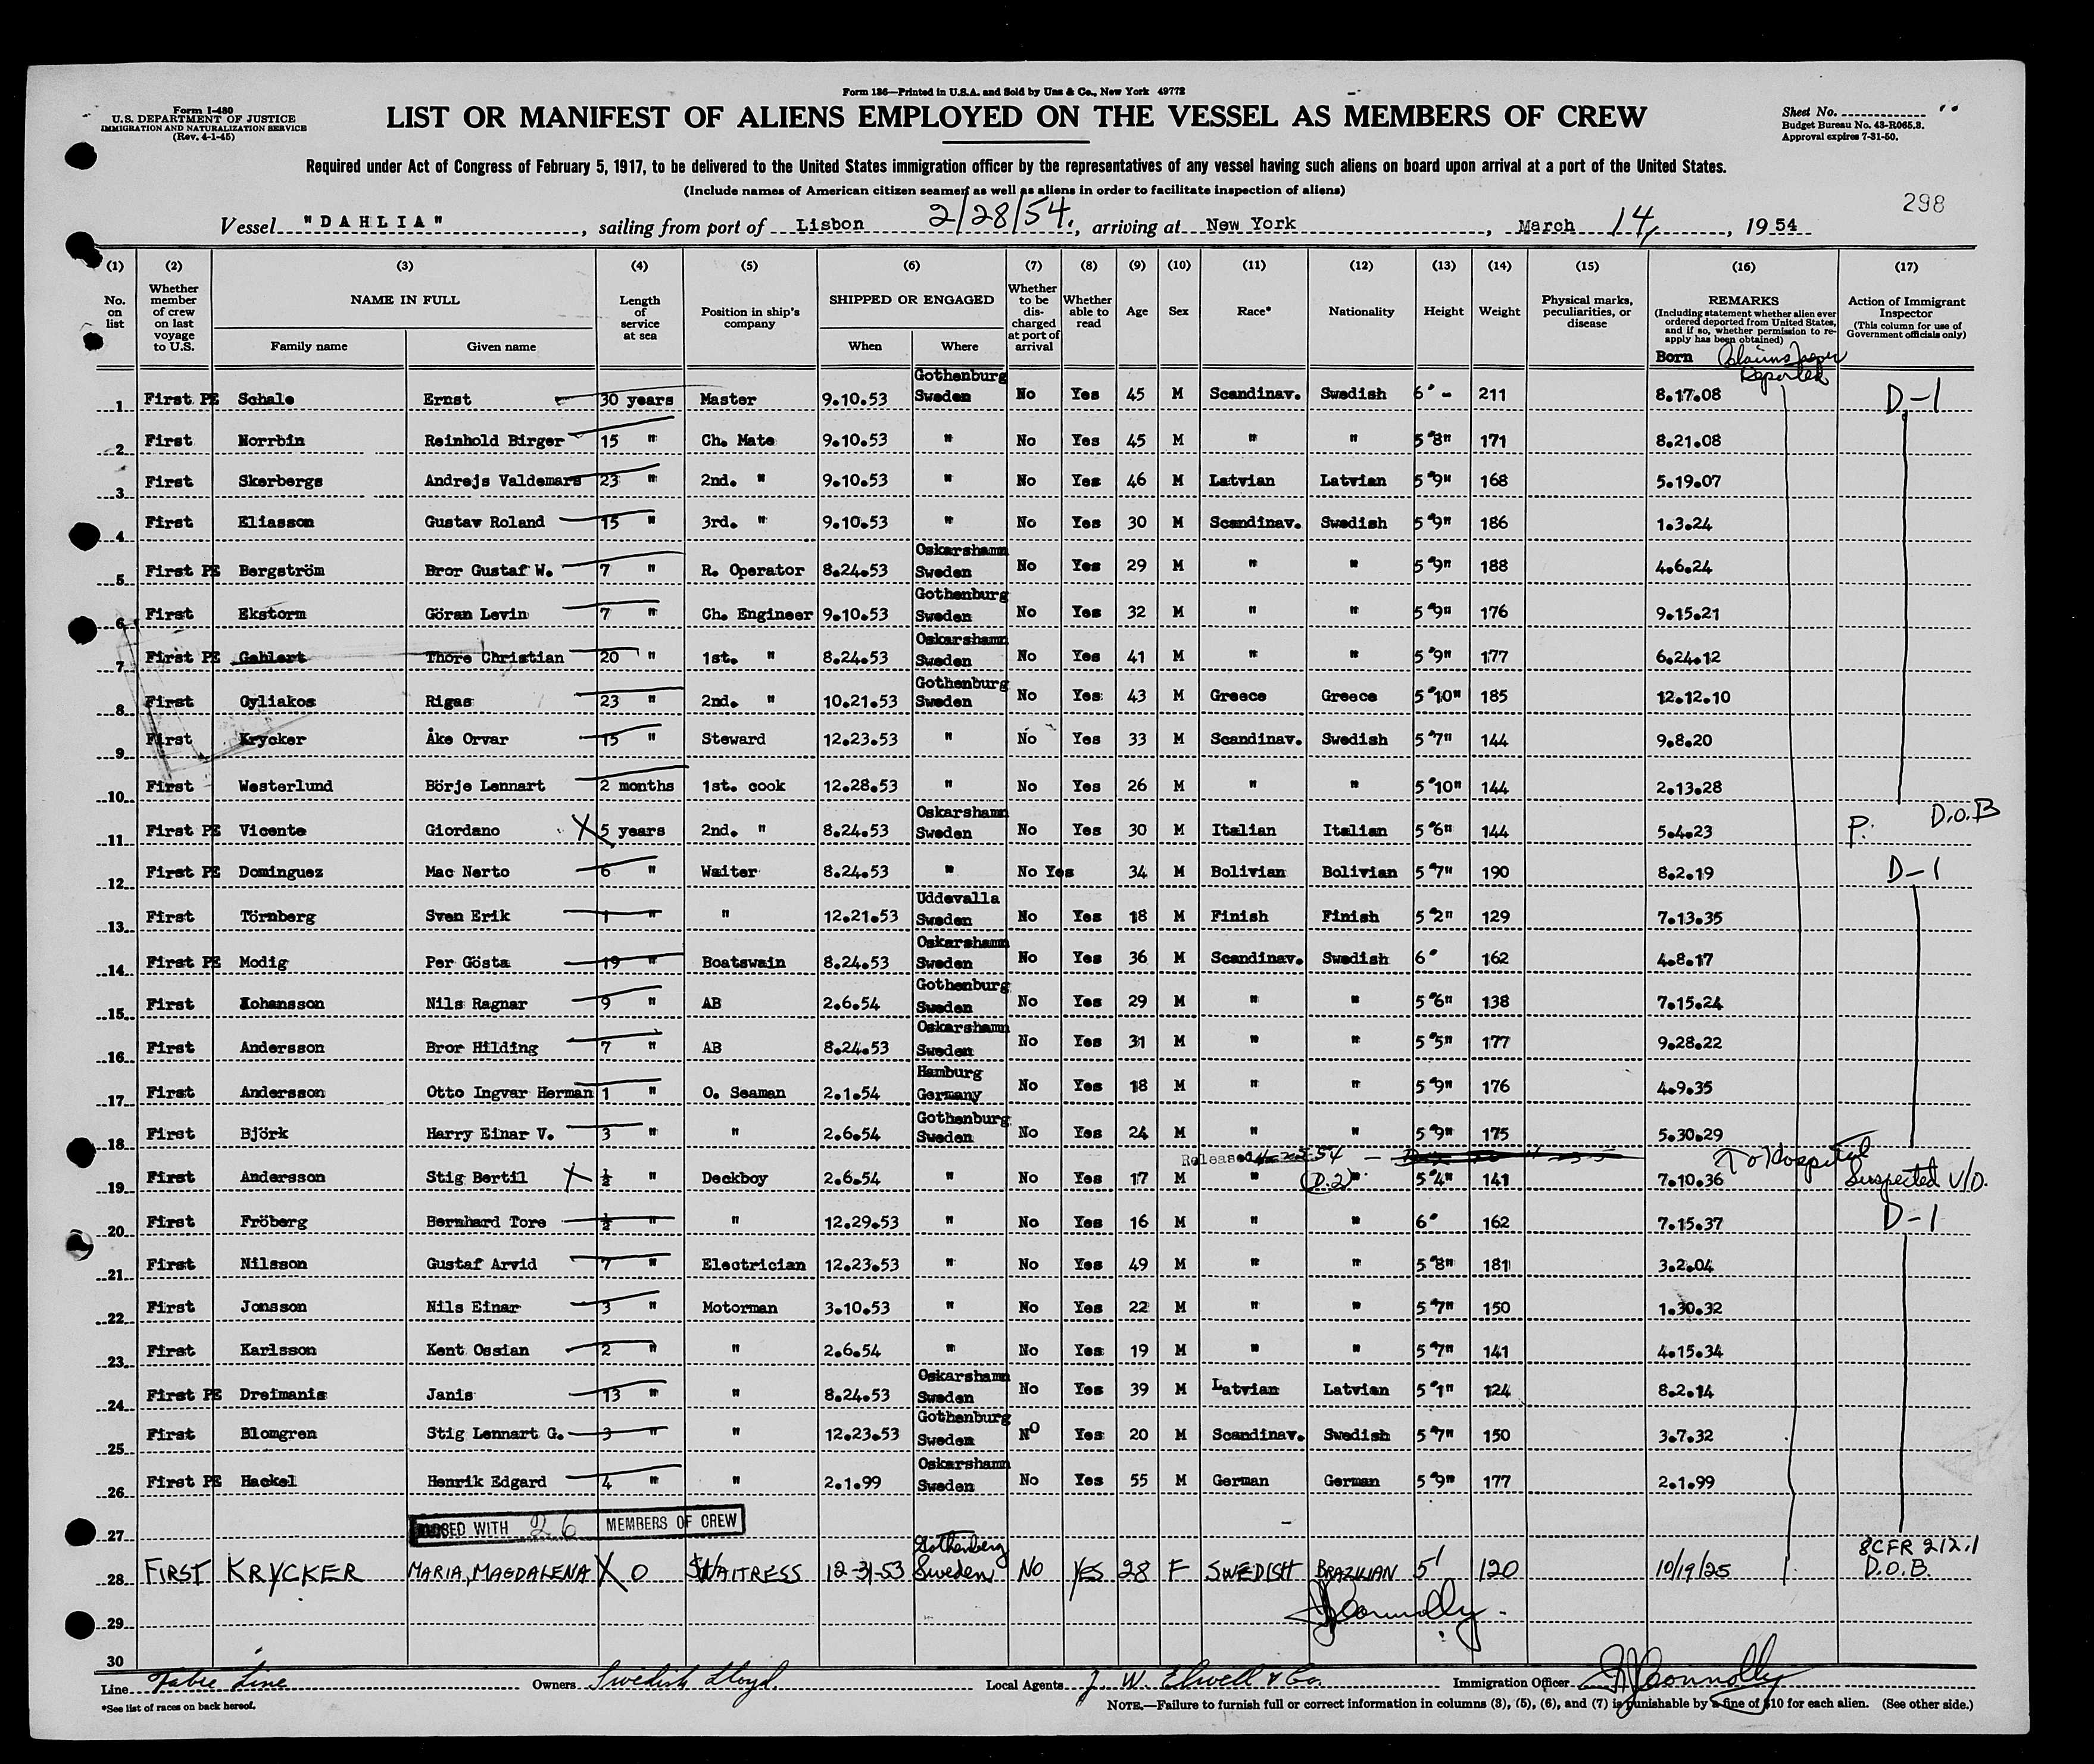 Form 186—Printed in U.S.A. and Sold by Unz & Co., New York 49772
Form I-480
U.S. DEPARTMENT OF JUSTICE
IMMIGRATION AND NATURALIZATION SERVICE
(Rev. 4-1-45)
LIST OR MANIFEST OF ALIENS EMPLOYED ON THE VESSEL AS MEMBERS OF CREW
Sheet No.
Budget Bureau No. 43-R065.3.
Approval expires 7-31-50.
Required under Act of Congress of February 5, 1917, to be delivered to the United States immigration officer by the representatives of any vessel having such aliens on board upon arrival at a port of the United States.
(Include names of American citizen seamen as well as aliens in order to facilitate inspection of aliens)
298
Vessel "DAHLIA", sailing from port of Lisbon 2/28/54, arriving at New York, March 14, 1954
(1) (2) (3) (4) (5) (6) (7) (8) (9) (10) (11) (12) (13) (14) (15) (16) (17)
No. on list Whether member of crew on last voyage to U.S. NAME IN FULL Family name Given name Length of service at sea Position in ship's company SHIPPED OR ENGAGED When Where Whether to be discharged at port of arrival Whether able to read Age Sex Race* Nationality Height Weight Physical marks, peculiarities, or disease REMARKS (Including statement whether alien ever ordered deported from United States, and if so, whether permission to re-apply has been obtained) Action of Immigrant Inspector (This column for use of Government officials only)
Born
1 First PE Schale Ernst 30 years Master 9.10.53 Gothenburg Sweden No Yes 45 M Scandinav. Swedish 6' - 211 8.17.08 D-1
2 First Norrbin Reinhold Birger 15 " Ch. Mate 9.10.53 " No Yes 45 M " " 5'8" 171 8.21.08
3 First Skerbergs Andrejs Valdemars 23 " 2nd. " 9.10.53 " No Yes 46 M Latvian Latvian 5'9" 168 5.19.07
4 First Eliasson Gustav Roland 15 " 3rd. " 9.10.53 " No Yes 30 M Scandinav. Swedish 5'9" 186 1.3.24
5 First PE Bergström Bror Gustaf W. 7 " R. Operator 8.24.53 Oskarshamn Sweden No Yes 29 M " " 5'9" 188 4.6.24
6 First Ekstorm Göran Levin 7 " Ch. Engineer 9.10.53 Gothenburg Sweden No Yes 32 M " " 5'9" 176 9.15.21
7 First PE Gahlert Thore Christian 20 " 1st. " 8.24.53 Oskarshamn Sweden No Yes 41 M " " 5'9" 177 6.24.12
8 First Gyliakos Rigas 23 " 2nd. " 10.21.53 Gothenburg Sweden No Yes 43 M Greece Greece 5'10" 185 12.12.10
9 First Krycker Åke Orvar 15 " Steward 12.23.53 " No Yes 33 M Scandinav. Swedish 5'7" 144 9.8.20
10 First Westerlund Börje Lennart 2 months 1st. cook 12.28.53 " No Yes 26 M " " 5'10" 144 2.13.28
11 First PE Vicente Giordano X 5 years 2nd. " 8.24.53 Oskarshamn Sweden No Yes 30 M Italian Italian 5'6" 144 5.4.23 P. D.O.B
12 First PE Dominguez Mac Nerto 6 " Waiter 8.24.53 " No Yes 34 M Bolivian Bolivian 5'7" 190 8.2.19 D-1
13 First Törnberg Sven Erik 1 " " 12.21.53 Uddevalla Sweden No Yes 18 M Finish Finish 5'2" 129 7.13.35
14 First PE Modig Per Gösta 19 " Boatswain 8.24.53 Oskarshamn Sweden No Yes 36 M Scandinav. Swedish 6' 162 4.8.17
15 First Kohansson Nils Ragnar 9 " AB 2.6.54 Gothenburg Sweden No Yes 29 M " " 5'6" 138 7.15.24
16 First Andersson Bror Hilding 7 " AB 8.24.53 Oskarshamn Sweden No Yes 31 M " " 5'5" 177 9.28.22
17 First Andersson Otto Ingvar Herman 1 " O. Seaman 2.1.54 Hamburg Germany No Yes 18 M " " 5'9" 176 4.9.35
18 First Björk Harry Einar V. 3 " " 2.6.54 Gothenburg Sweden No Yes 24 M " " 5'9" 175 5.30.29
Released To Hospital
19 First Andersson Stig Bertil X ½ " Deckboy 2.6.54 " No Yes 17 M " (D.2) " 5'4" 141 7.10.36 Suspected V/D.
20 First Fröberg Bernhard Tore ½ " " 12.29.53 " No Yes 16 M " " 6' 162 7.15.37 D-1
21 First Nilsson Gustaf Arvid 7 " Electrician 12.23.53 " No Yes 49 M " " 5'8" 181 3.2.04
22 First Jonsson Nils Einar 3 " Motorman 3.10.53 " No Yes 22 M " " 5'7" 150 1.30.32
23 First Karlsson Kent Ossian 2 " " 2.6.54 " No Yes 19 M " " 5'7" 141 4.15.34
24 First PE Dreimanis Janis 13 " " 8.24.53 Oskarshamn Sweden No Yes 39 M Latvian Latvian 5'1" 124 8.2.14
25 First Blomgren Stig Lennart G. 3 " " 12.23.53 Gothenburg Sweden No Yes 20 M Scandinav. Swedish 5'7" 150 3.7.32
26 First PE Hackel Henrik Edgard 4 " " 2.1.99 Oskarshamn Sweden No Yes 55 M German German 5'9" 177 2.1.99
27 CLOSED WITH 26 MEMBERS OF CREW
28 FIRST KRYCKER MARIA, MAGDALENA X 0 WAITRESS 12-31-53 Gothenberg Sweden NO YES 28 F SWEDISH BRAZILIAN 5' 120 10/19/25 8CFR 212.1 D.O.B.
29 Connolly
30
Line Fabre Line Owners Swedish Lloyd. Local Agents J. W. Elwell & Co. Immigration Officer Connolly
*See list of races on back hereof.
NOTE.—Failure to furnish full or correct information in columns (3), (5), (6), and (7) is punishable by a fine of $10 for each alien. (See other side.)